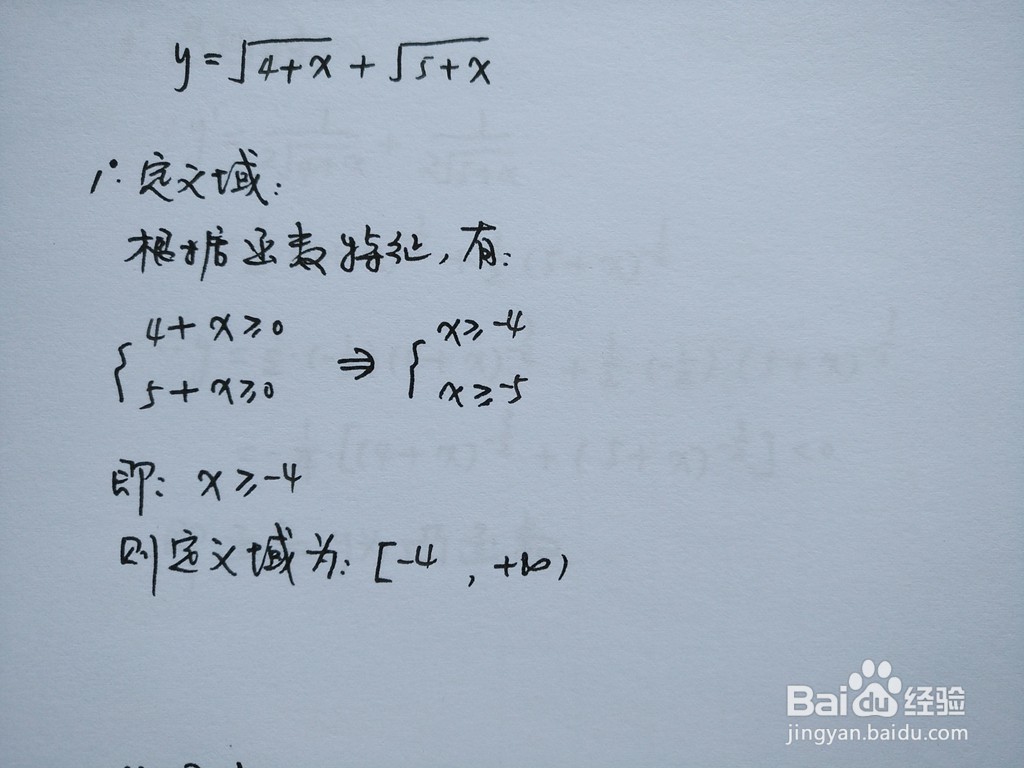 y=√4+x + √5+x
1°. 定义域：
根据函数特征，有：
{ 4+x≥0 ⇒ { x≥-4
5+x≥0 x≥-5
即： x≥-4
则定义域为：[-4 , +∞)
Bai du 经验
jingyan.baidu.com